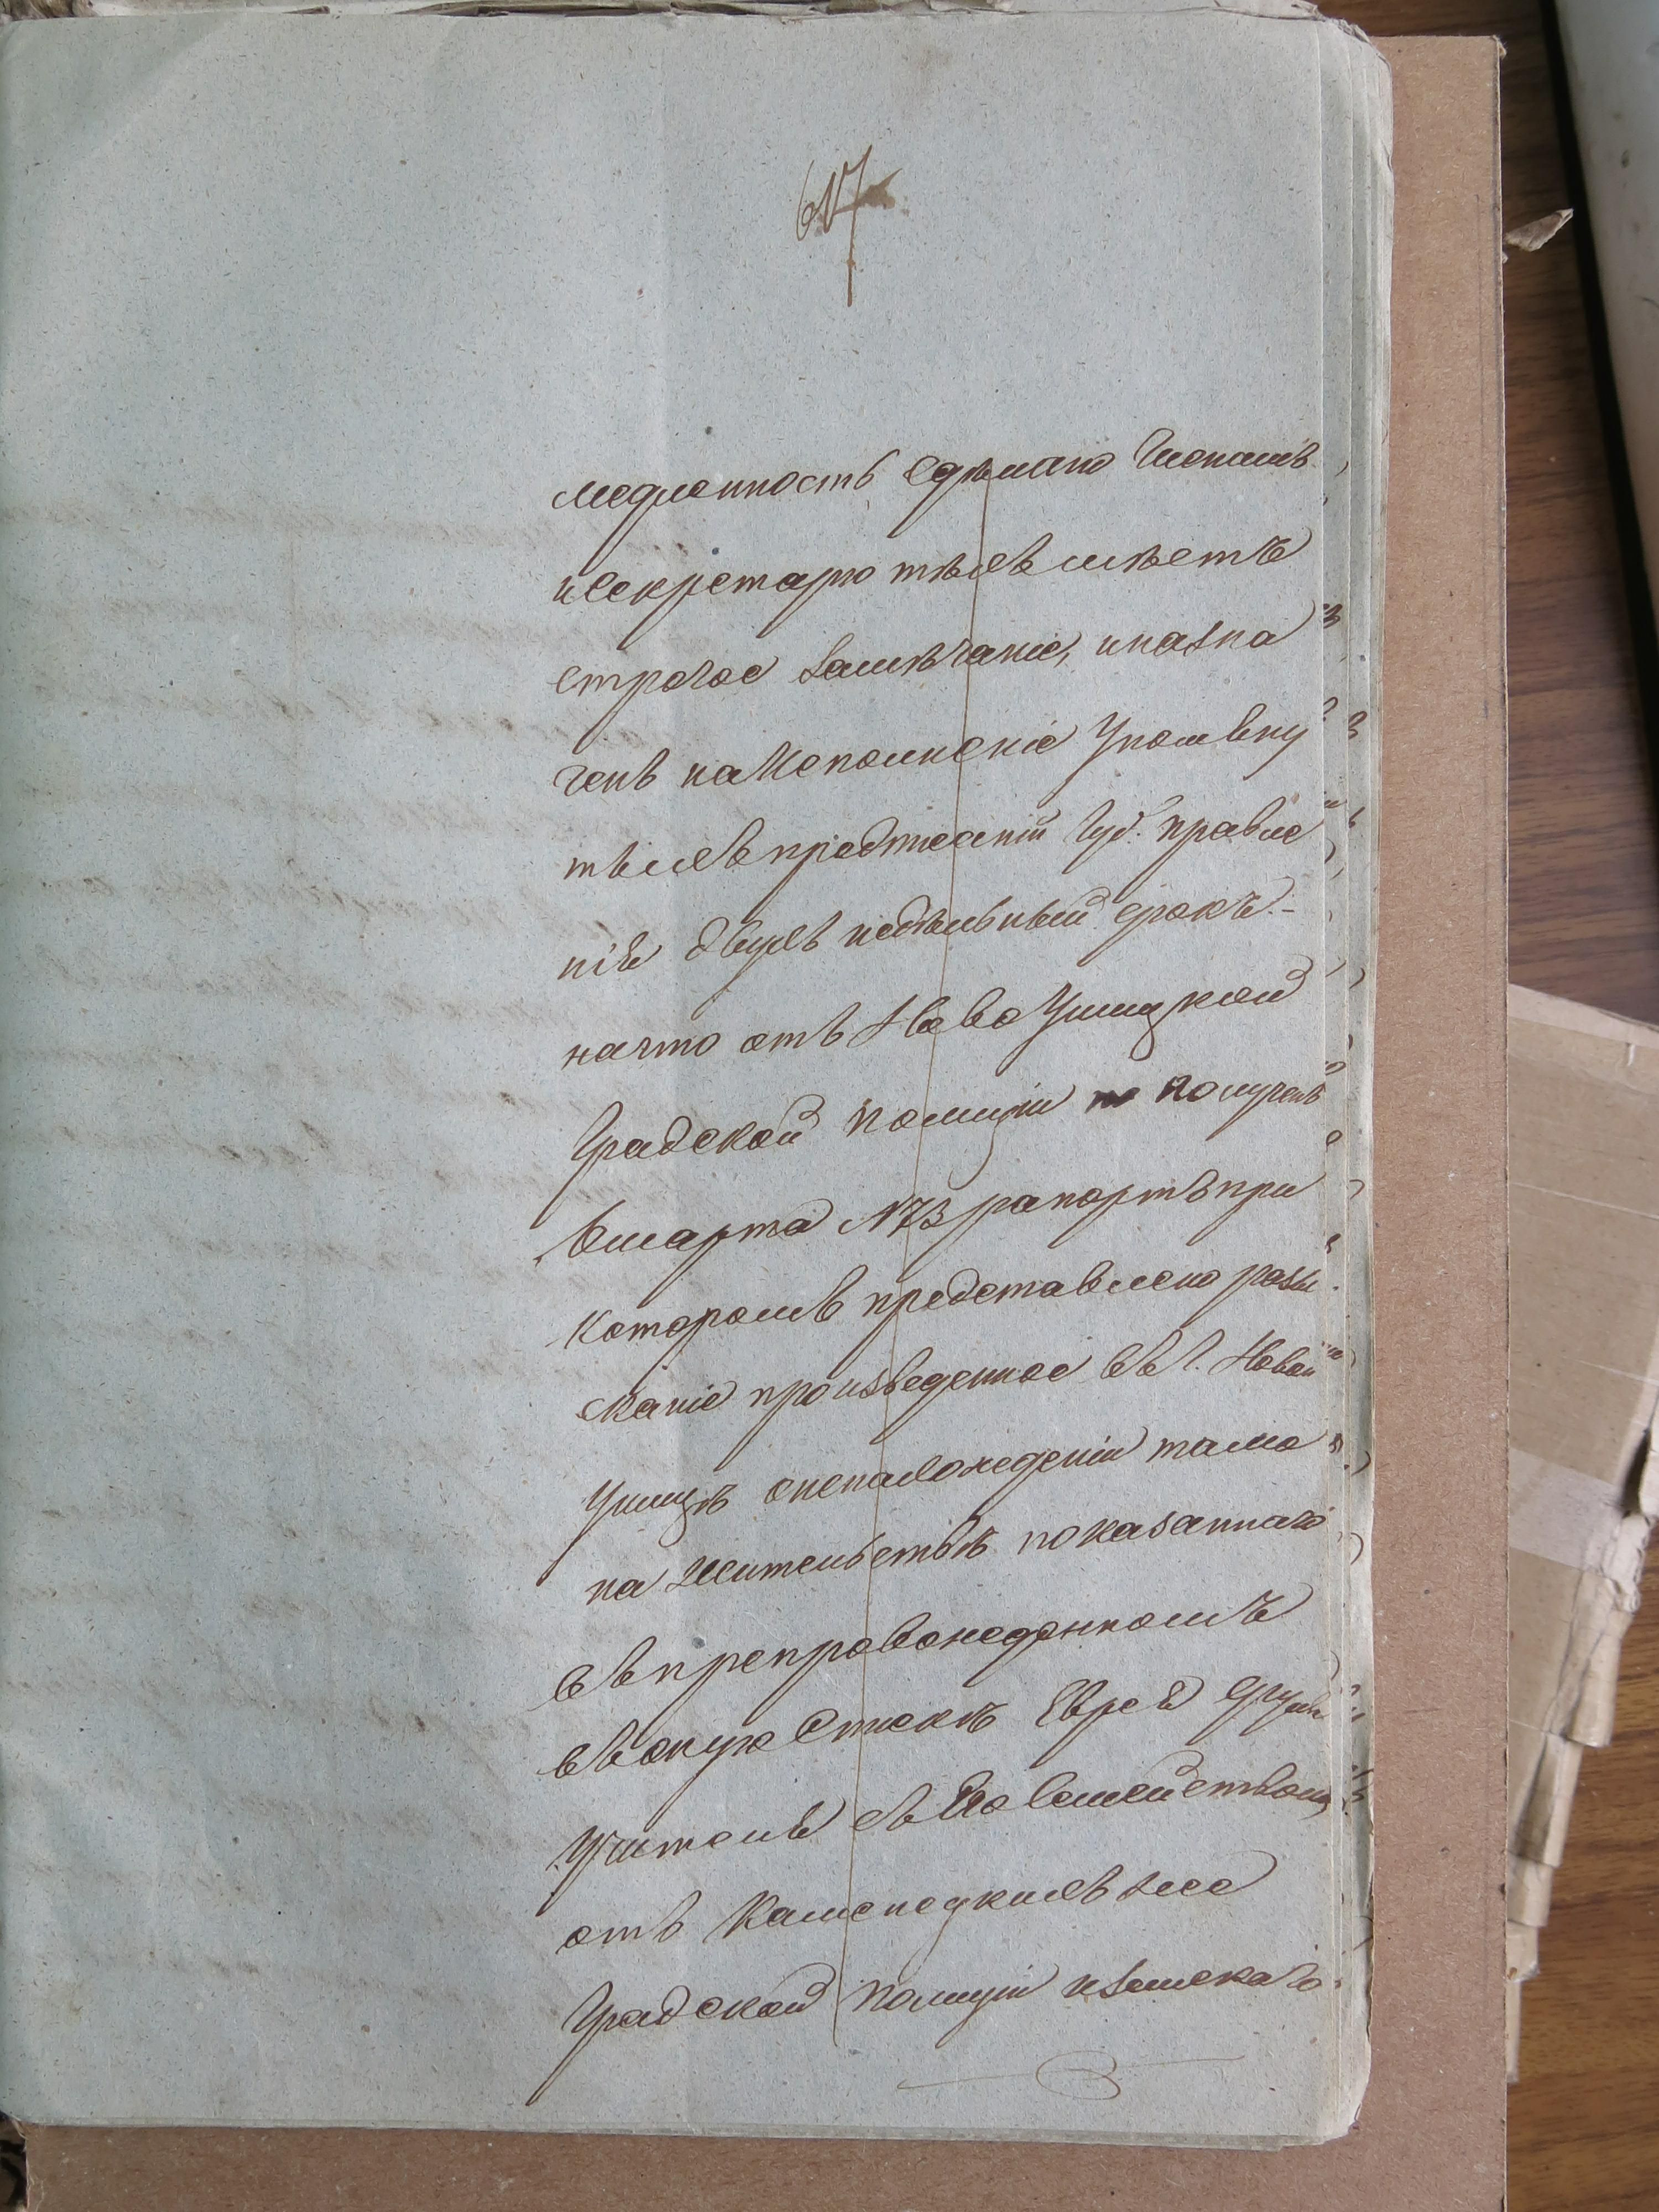 617
медленность сделано Членамъ
и Секретарю тѣхъ мѣстъ
строгое замѣчаніе, и назна
ченъ на Исполненіе Упомяну
тыхъ предписаній Губ. правле
нія двухъ недѣльный срокъ.-
на что отъ Ново Ушицкой
Градской полиціи полученъ
марта №73 рапортъ при
которомъ представлено розы
сканіе произведенное въ г. Новой
Ушицѣ о ненахожденіи тамо
на жительствѣ показаннаго
въ препровожденномъ
въ оную Спискѣ Еврея
Учителя съ Его Семействомъ
отъ Каменецкихъ же
Градской полиціи и земскаго